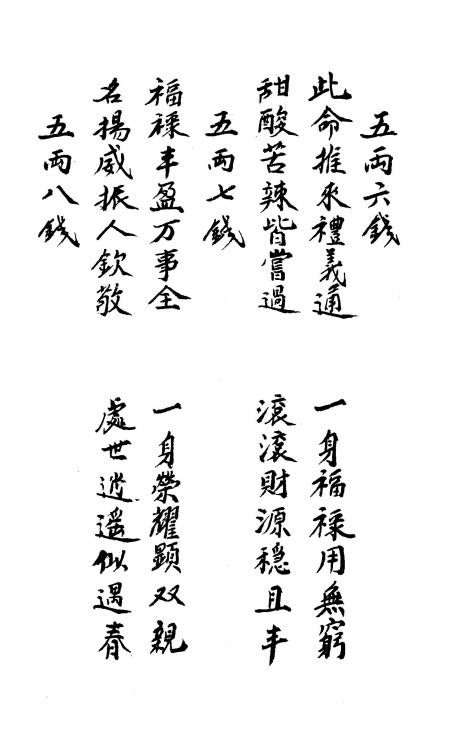 五両六錢
此命推來禮義通
一身福祿用無窮
甜酸苦辣皆嘗過
滾滾財源穩且丰
五両七錢
福祿丰盈万事全
一身榮耀顯双親
名揚威振人欽敬
處世逍遥似遇春
五両八錢